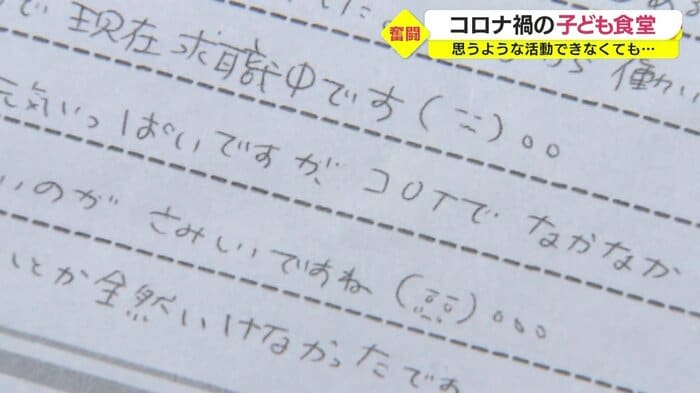 奮闘
コロナ禍の子ども食堂
思うような活動できなくても…
で現在求職中です(＝)。。
元気いっぱいですが、コロナでなかなか
いのがさみしいですね(
)。。。
とか全然いけなかったです